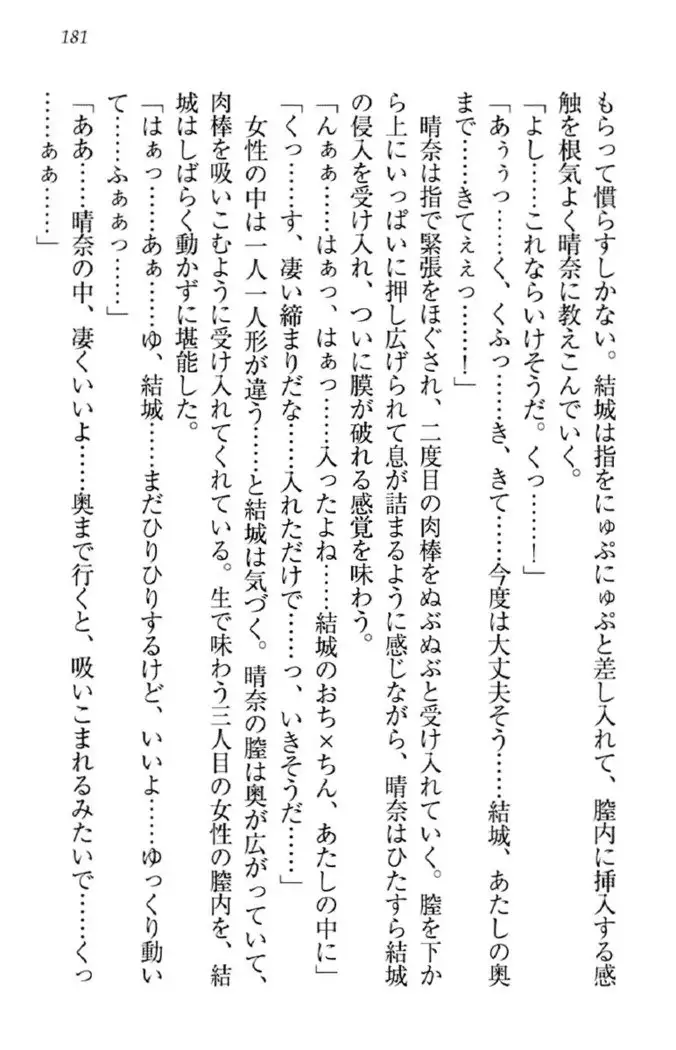 181
もらって慣らすしかない。結城は指をにゅぷにゅぷと差し入れて、膣内に挿入する感
触を根気よく晴奈に教えこんでいく。
「よし……これならいけそうだ。くっ………！」
「あぅぅっ……く、くふっ……き、きて……今度は大丈夫そう……結城、あたしの奥
まで……きてぇぇっ……！」
晴奈は指で緊張をほぐされ、二度目の肉棒をぬぷぬぷと受け入れていく。膣を下か
ら上にいっぱいに押し広げられて息が詰まるように感じながら、晴奈はひたすら結城
の侵入を受け入れ、ついに膜が破れる感覚を味わう。
「んぁぁ……はぁっ、はぁっ……入ったよね……結城のおち×ちん、あたしの中に」
「くっ……す、凄い締まりだな……入れただけで……っ、いきそうだ……」
女性の中は一人一人形が違う……と結城は気づく。晴奈の膣は奥が広がっていて、
肉棒を吸いこむように受け入れてくれている。生で味わう三人目の女性の膣内を、結
城はしばらく動かずに堪能した。
「はぁっ……あぁ……ゆ、結城……まだひりひりするけど、いいよ……ゆっくり動い
て……ふぁぁっ……」
「ああ……晴奈の中、凄くいいよ……奥まで行くと、吸いこまれるみたいで……くっ
……ぁぁ……」